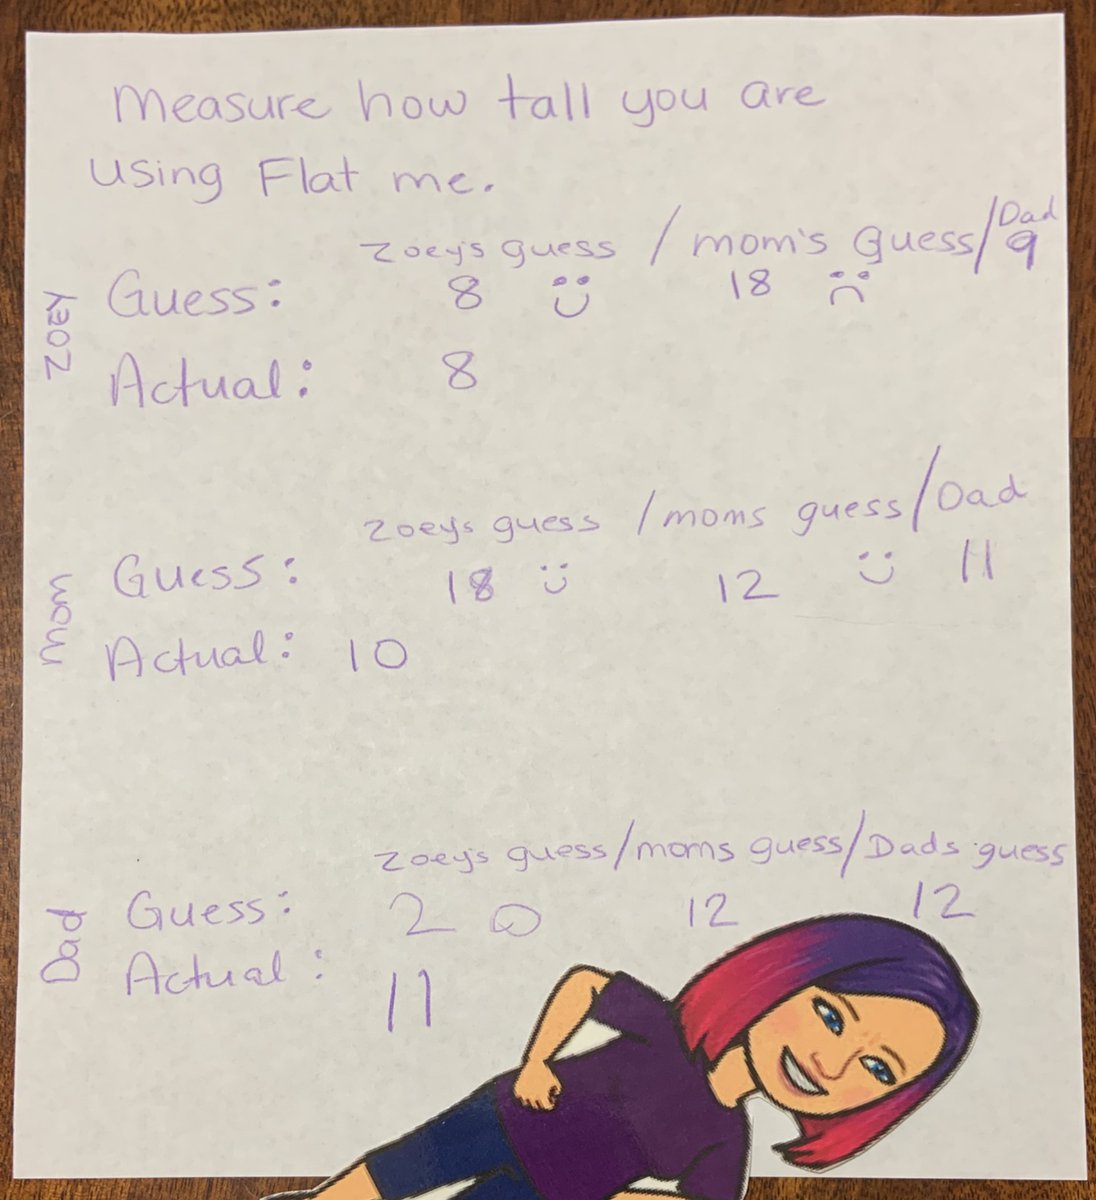 measure how tall you are
using Flat me.
ZOEY
Zoey's guess / mom's guess / Dad
Guess: 8 18 9
Actual: 8
mom
Zoeys guess / moms guess / Dad
Guess: 18 12 11
Actual: 10
Dad
Zoey's guess / moms guess / Dads guess
Guess: 20 12 12
Actual: 11